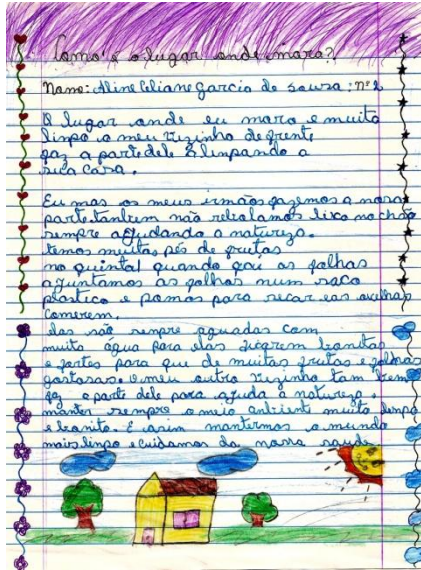 Como é o lugar onde mora?
Nome: Aline Celiane Garcia de Souza : nº 2
O lugar onde eu moro e muito
limpo o meu vizinho de frente
faz a parte dele limpando a
sua casa.
Eu mas os meus irmãos fazemos a nosa
parte. tanbem não rebolamos lixo no chão
sempre ajudando a natureza.
temos muitas pés de frutas
no quintal quando gai as folhas
ajuntamos as folhas num saco
plastico e pomos para secar e as ovelhas
comerem.
elas são sempre aguadas com
muita água para elas ficarem bonitas
e fortes para que de muitas frutas e folhas
gostosas. O meu outro vizinho tam bem
faz a parte dele para ajuda a natureza.
manter sempre o meio anbient muito limpo
e bonito. E asim mantermos o mundo
mais limpo e cuidamos da nossa saude